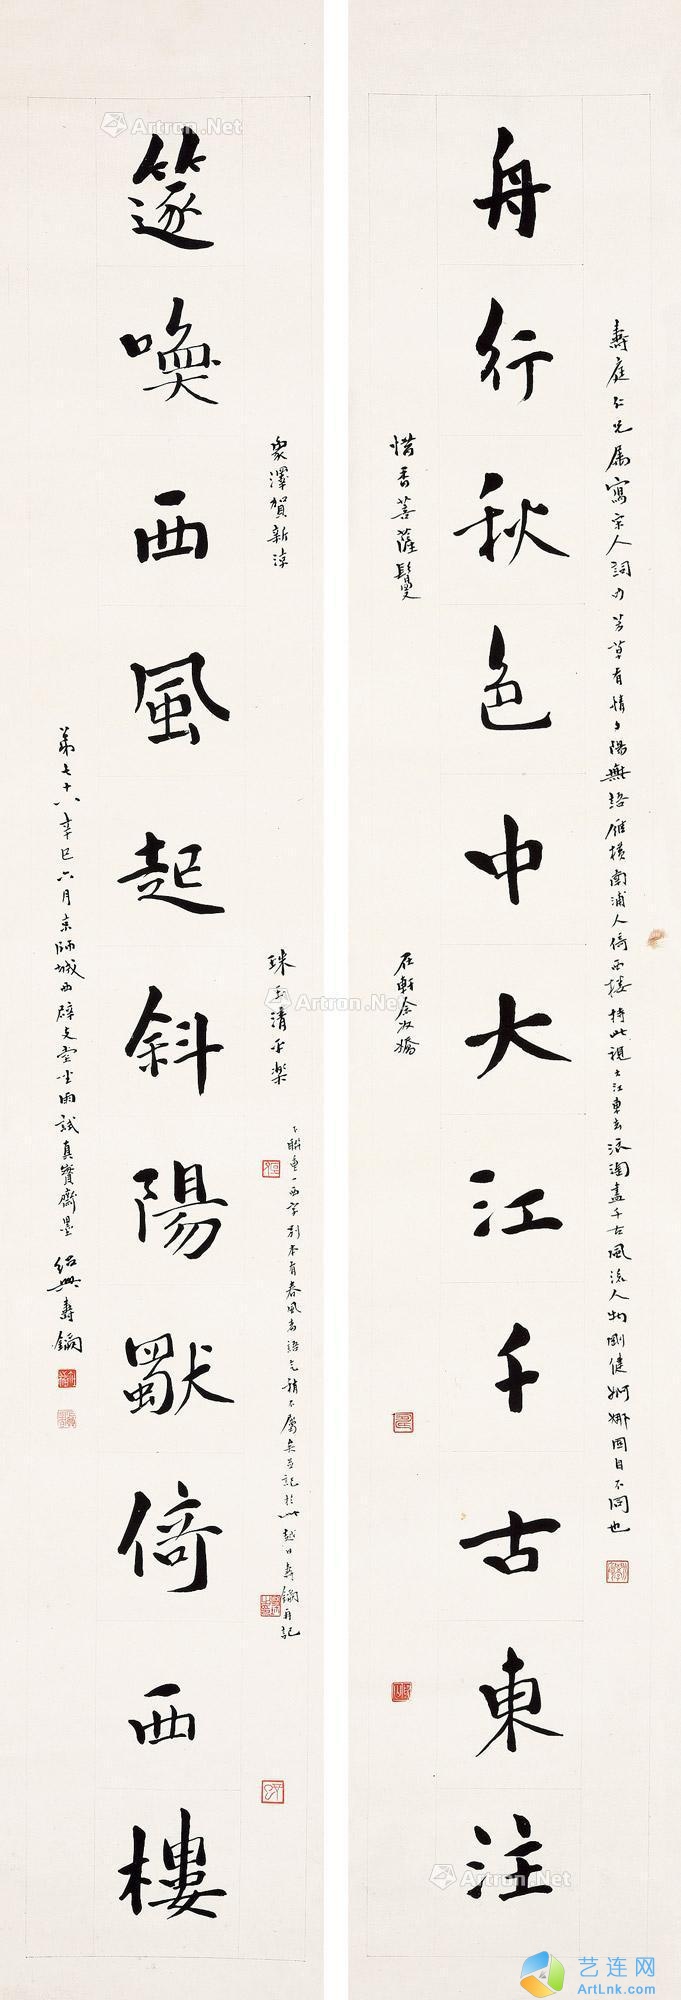 舟行秋色中大江千古東注
壽庭仁兄屬寫宋人詞 芳草有情夕陽無語雁橫南浦人倚西樓 持此視大江東去浪淘盡千古風流人物剛健婀娜固自不同也
惜香菩薩鬘
石軒金縷
籧喚西風起斜陽獸倚西樓
眾澤賀新涼
珠玉清平樂
下聯重一西字別本有春風者語氣稍不屬矣並記於此越日壽鑈再記
第七十八辛巳六月京師城西辟支堂坐雨試真賞齋墨紹興壽鑈
Artron.Net
Artron.Net
Artron.Net
Artron.Net
Artron.Net
艺连网
ArtLnk.com